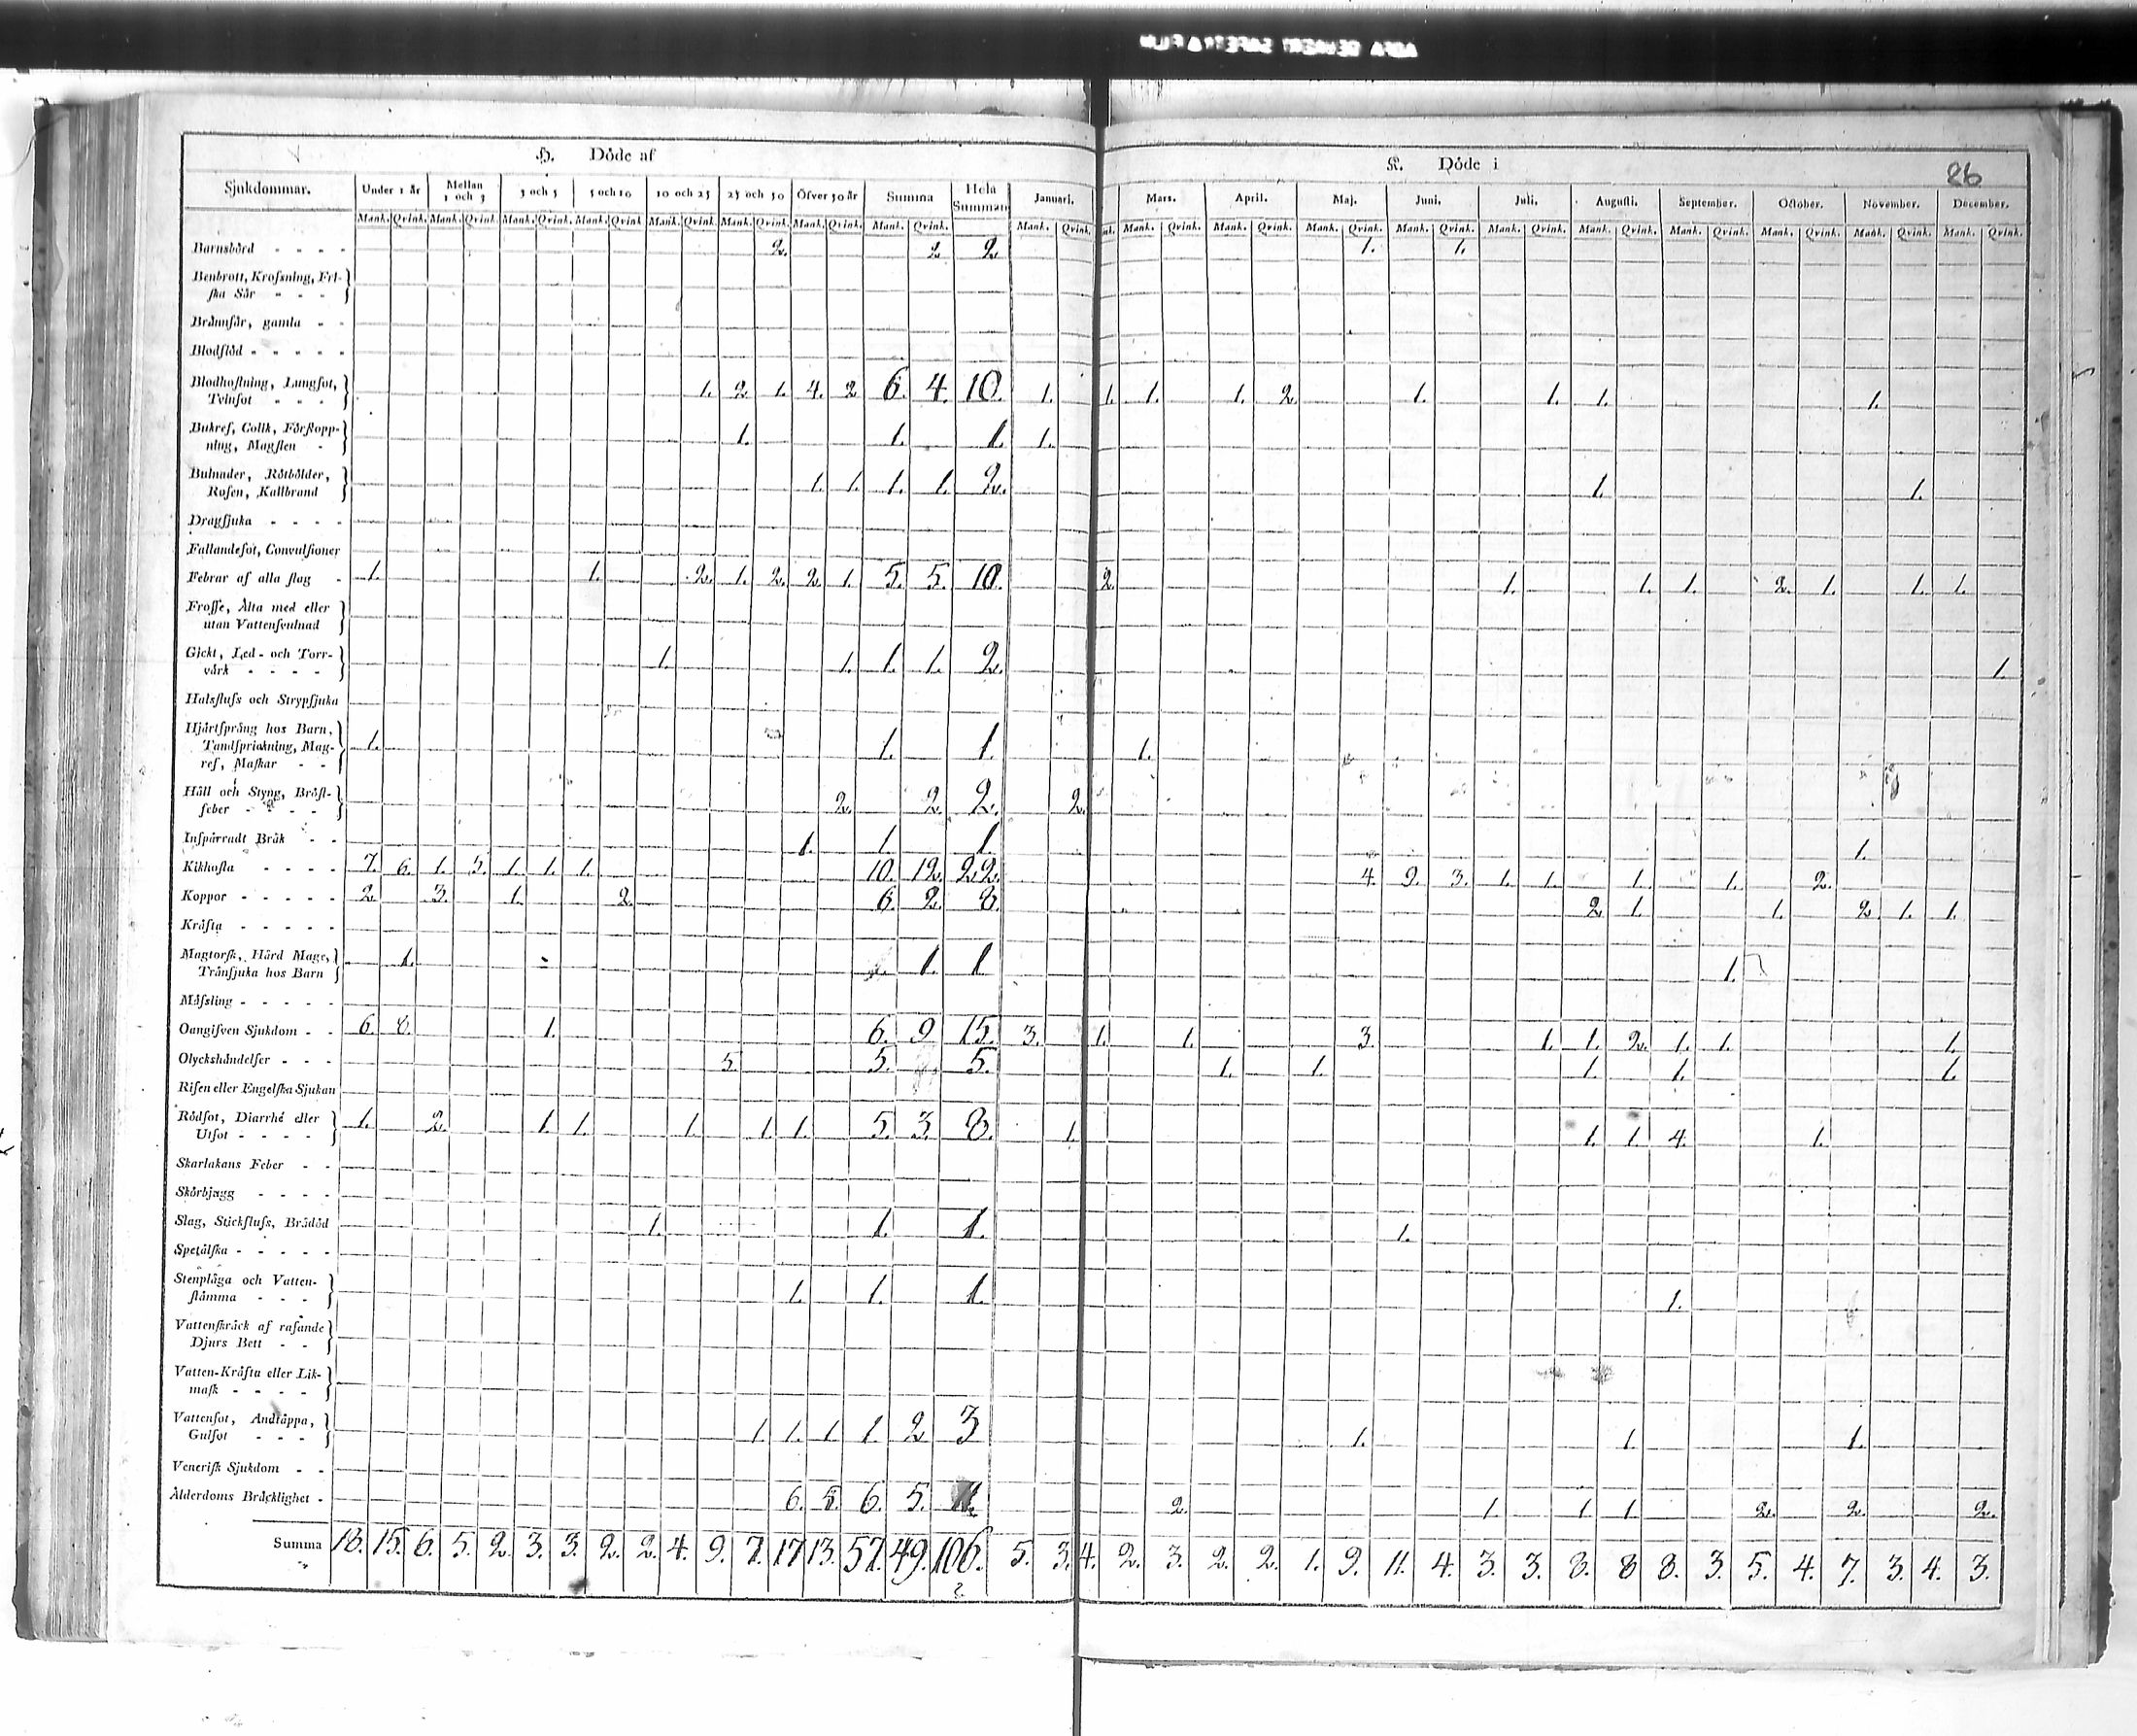 H. Döde af K. Döde i 26
Sjukdommar. Under 1 år Mellan 1 och 3 3 och 5 5 och 10 10 och 25 25 och 50 Öfver 50 år Summa Hela Summan Januari. Mars. April. Maj. Juni. Juli. Augusti. September. October. November. December.
Mank. Qvink. Mank. Qvink. Mank. Qvink. Mank. Qvink Mank. Qvink. Mank. Qvink. Mank. Qvink. Mank. Qvink. Mank. Qvink. Mank. Qvink. Mank. Qvink. Mank. Qvink. Mank. Qvink. Mank. Qvink. Mank. Qvink. Mank. Qvink. Mank. Qvink. Mank. Qvink. Mank. Qvink.
Barnsbörd 2. 2 2 1. 1.
Benbrott, Krossning, Fri-
ska Sår
Brännsår, gamla
Blodslöd
Blodhostning, Lungsot,
Tvinsot 1. 2 1. 4. 2 6. 4. 10. 1. 1. 1. 1. 2. 1. 1. 1. 1.
Bukref, Collk, Förstopp-
ning, Magsten 1. 1. 1. 1.
Bulnader, Rötbölder,
Rosen, Kallbrand 1. 1. 1. 1. 2. 1. 1.
Dragsjuka
Fallandesot, Convulsioner
Febrar af alla slag 1. 1. 2. 1. 2. 2. 1. 5. 5. 10. 2. 1. 1. 1. 2. 1. 1. 1.
Frosse, Älta med eller
utan Vattensvulnad
Gickt, Led- och Torr-
värk 1. 1. 1. 1. 2. 1.
Halsfluss och Strypsjuka
Hjärtsprång hos Barn,
Tandsprickning, Mag-
ref, Maskar 1. 1. 1. 1.
Håll och Styng, Bröst-
feber 2. 2. 2. 2.
Inspärradt Bråk 1. 1. 1. 1.
Kikhosta 7. 6. 1. 5. 1. 1. 1. 10. 12. 22. 4. 9. 3. 1. 1. 1. 1. 2.
Koppor 2. 3. 1. 2. 6. 2. 8. 2 1. 1. 2. 1. 1.
Kräfta
Magtorsk, Hård Mage,
Trånsjuka hos Barn 1. 1. 1 1.
Mässling
Oangifven Sjukdom 6. 8. 1. 6. 9 15. 3. 1. 1. 3. 1. 1. 2. 1. 1. 1.
Olyckshändelser 5. 5. 5. 1. 1. 1. 1. 1.
Risen eller Engelska Sjukan
Rödsot, Diarrhé eller
Utsot 1. 2. 1. 1. 1. 1. 1. 5. 3. 8. 1. 1. 1. 4. 1.
Skarlakans Feber
Skörbjugg
Slag, Stickfluss, Brådöd 1. 1. 1. 1.
Spetälska
Stenplåga och Vatten-
stämma 1. 1. 1. 1.
Vattenskräck af rasande
Djurs Bett
Vatten-Kräfta eller Lik-
mask
Vattensot, Andtäppa,
Gulsot 1. 1. 1. 1. 2 3 1. 1. 1.
Venerisk Sjukdom
Ålderdoms Bräcklighet 6. 5. 6. 5. 2. 1. 1. 1. 2. 2. 2.
Summa 18. 15. 6. 5. 2. 3. 3. 2. 2. 4. 9. 7. 17 13. 57. 49. 106. 5. 3. 4. 2. 3. 2. 2. 1. 9. 11. 4. 3. 3. 8. 8 8. 3. 5. 4. 7. 3. 4. 3.